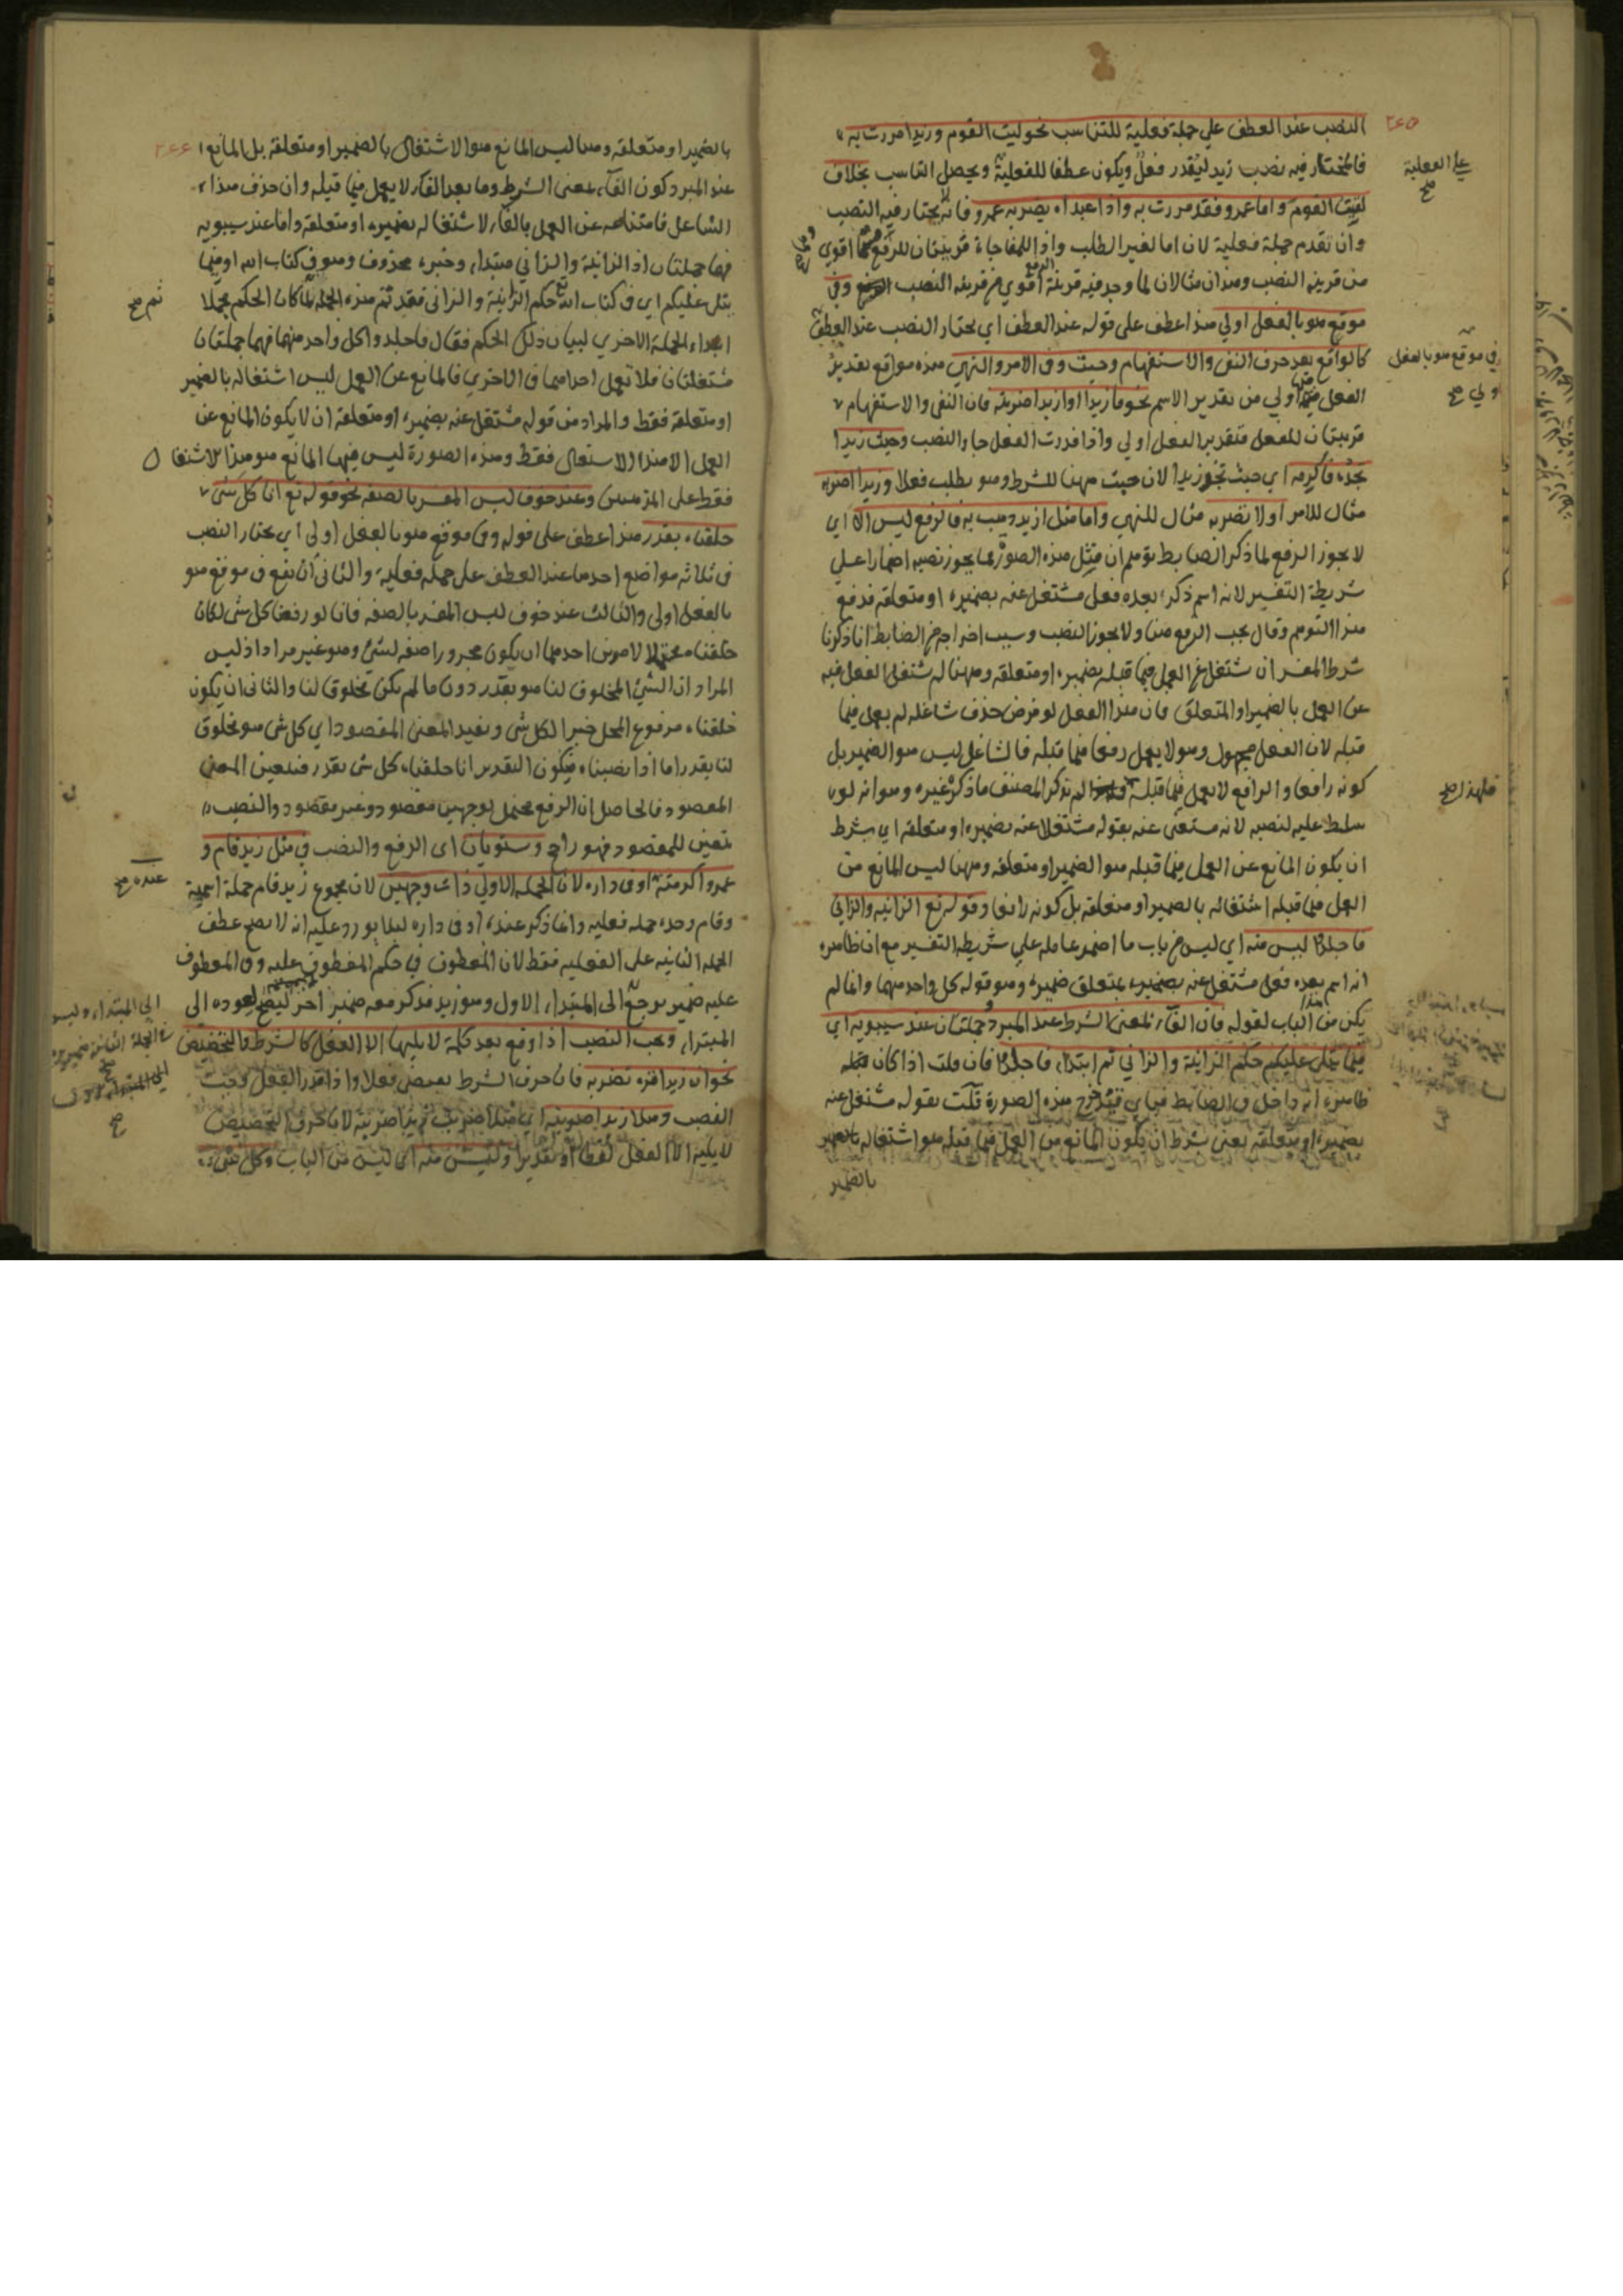 ٢٤٥
النصب عند العطف علي جملة فعلية للتناسب نحو لقيت القوم وزيدا مررت به
فالمختار فيه نصب زيد ليقدر فعل ويكون عطفا للفعلية ويحصل التناسب بخلاف
علي الفعلية صح
لقيت القوم واما عمرو فقد مررت به واذا عبد الله يضربه عمرو فانه لا يختار فيه النصب
وان تقدم جملة فعلية لان اما لغير الطلب واذا للمفاجاءة قرينتان للرفع اقوي
من قرينة النصب وهذان مثالان لما وجد فيه قرينة الرفع اقوي من قرينة النصب وفي
موقع هو بالفعل اولي هذا عطف على قوله عند العطف اي يختار النصب عند العطف
كالواقع بعد حرف النفي والاستفهام وحيث وفي الامر والنهي هذه مواقع تقدير
في موقع هو بالفعل اولي صح
الفعل فيها اولي من تقدير الاسم نحو ما زيدا او ازيدا ضربته فان النفي والاستفهام
قرينتان للفعل فتقدير الفعل اولي واذا قدرت الفعل جاء النصب وحيث زيدا
تجده فاكرمه اي حيث تجد زيدا لان حيث مهنا للشرط وهو يطلب فعلا وزيدا اضربه
مثال للامر او لا تضربه مثال للنهي واما مثل ازيد ذهب به فالرفع ليس الا اي
لا يجوز الا الرفع لما ذكر الضابط توهم ان مثل هذه الصور مما يجوز نصبه اضمارا علي
شريطة التفسير لانه اسم ذكر بعده فعل مشتغل عنه بضميره او متعلقه فدفع
هذا التوهم وقال يجب الرفع هنا ولا يجوز النصب وسبب اخراجه من الضابط انا ذكرنا
شرط المفسر ان يشتغل عن العمل فيما قبله بضميره او متعلقه وههنا لم يشتغل الفعل فيه
عن العمل بالضمير او المتعلق فان هذا الفعل لو فرض حذف شاغله لم يعمل فيما
قبله لان الفعل مجهول وهو لا يعمل رفعا فيما قبله فالشاغل ليس هو الضمير بل
كونه رافعا والرافع لا يعمل فيما قبله لم يذكر المصنف ما ذكره غيره وهو انه لو
فلهذا صح
سلط عليه لنصبه لانه مستغنى عنه بقوله مشتغلا عنه بضميره او متعلقه اي بشرط
ان يكون المانع عن العمل فيما قبله هو الضمير او متعلقه وههنا ليس المانع من
العمل فيما قبله اشتغاله بالضمير او متعلقه بل كونه رافعا وقوله تع الزانية والزاني
فاجلدوا ليس منه اي ليس من باب ما اضمر عامله علي شريطة التفسير مع ان ظاهره
انه اسم بعده فعل مشتغل عنه بضميره بمتعلق ضميره وهو قوله كل واحد منهما وانما لم
يكن من هذا الباب لقوله فان الفاء لمعنى الشرط عند المبرد وجملتان عند سيبويه اي
فيما يتلى عليكم حكم الزانية والزاني ثم ابتداء فاجلدوا فان قلت اذا كان
ظاهره انه داخل في الضابط فباي قيد خرج هذه الصورة قلت بقوله مشتغل عنه
بضميره او متعلقه يعني شرط ان يكون المانع من العمل فيما قبله هو اشتغاله
بالضمير
٢٤٤
بالضمير او متعلقه وهنا ليس المانع هو الاشتغال بالضمير او متعلقه بل المانع
عند المبرد كون الفاء بمعنى الشرط وما بعد الفاء لا يعمل فيما قبله وان حذف هذا
الشاغل فامتناعه عن العمل بالفاء لا لاشتغاله بضميره او متعلقه واما عند سيبويه
فهما جملتان اذ الزانية والزاني مبتداء وخبره محذوف وهو في كتاب الله او فيما
يتلى عليكم اي في كتاب الله تع حكم الزانية والزاني فقد تم هذه الجملة لما كان الحكم مجملا
ثم صح
ابتداء الجملة الاخري لبيان ذلك الحكم فقال فاجلدوا كل واحد منهما فهما جملتان
مستقلتان فلا تعمل احداهما في الاخري فالمانع عن العمل ليس اشتغاله بالضمير
او متعلقه فقط والمراد من قوله مشتغل عنه بضميره او متعلقه ان لا يكون المانع عن
العمل الا هذا الاشتغال فقط وهذه الصورة ليس فيها المانع هو هذا الاشتغال
فقط على المذهبين وعند خوف لبس المفسر بالصفة نحو قوله تع انا كل شئ
خلقناه بقدر هذا عطف على قوله وفي موقع هو بالفعل اولى اي يختار النصب
في ثلاثة مواضع احدها عند العطف على جملة فعلية والثاني ان يقع في موقع هو
بالفعل اولى والثالث عند خوف لبس المفسر بالصفة فانا لو رفعنا كل شئ لكان
خلقناه محتملا لامرين احدهما ان يكون مجرورا صفة لشئ وهو غير مراد اذ ليس
المراد ان الشئ المخلوق لنا هو بقدر دون ما لم يكن مخلوق لنا والثاني ان يكون
خلقناه مرفوع المحل خبرا لكل شئ ويفيد المعنى المقصود اي كل شئ هو مخلوق
لنا بقدر اما اذا نصبناه فيكون التقدير انا خلقنا كل شئ بقدر فتعين المعنى
المقصود فالحاصل ان الرفع محتمل لوجهين مقصود وغير مقصود والنصب
متعين للمقصود فهو راجح ويستويان اي الرفع والنصب في مثل زيد قام و
عمرو اكرمته او في داره لان الجملة الاولي ذات وجهين لان مجموع زيد قام جملة اسمية
عنده صح
وقام وحده جملة فعلية وانما ذكر عنده او في داره ليلا يورد عليه انه لا يصح عطف
الجملة الثانية على الفعلية فقط لان المعطوف في حكم المعطوف عليه وفي المعطوف
عليه ضمير يرجع الى المبتداء الاول وهو زيد فذكر معه ضمير اخر ليصح لعوده الى
الى المبتداء وليس في الجملة الثانية ضمير
المبتداء ويجب النصب اذا وقع بعد كلمة لا يليها الا الفعل كالشرط والتخضيض
نحو ان زيدا تره تضربه فان حرف الشرط يقتضي فعلا واذا قدر الفعل وجب
النصب وهلا زيدا ضربته اي هلا ضربت زيدا ضربته لان حرف التخضيض
لا يليه الا الفعل لفظا او تقديرا وليس منه اي ليس من الباب وكل شئ